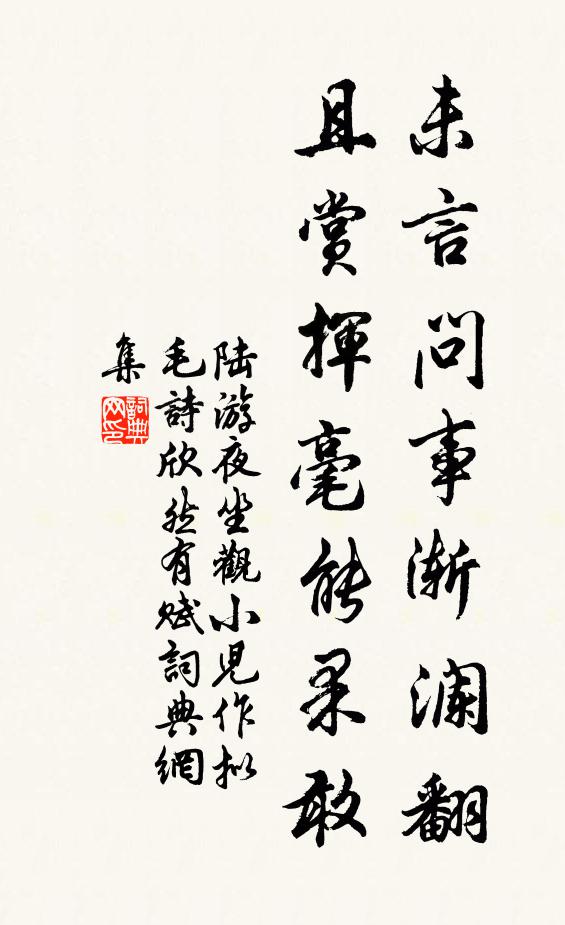 未言問事漸瀾翻
且賞揮毫能果敢
陸游夜坐觀小兒作拟
毛詩欣然有賦詞典網
集
詞典
网印